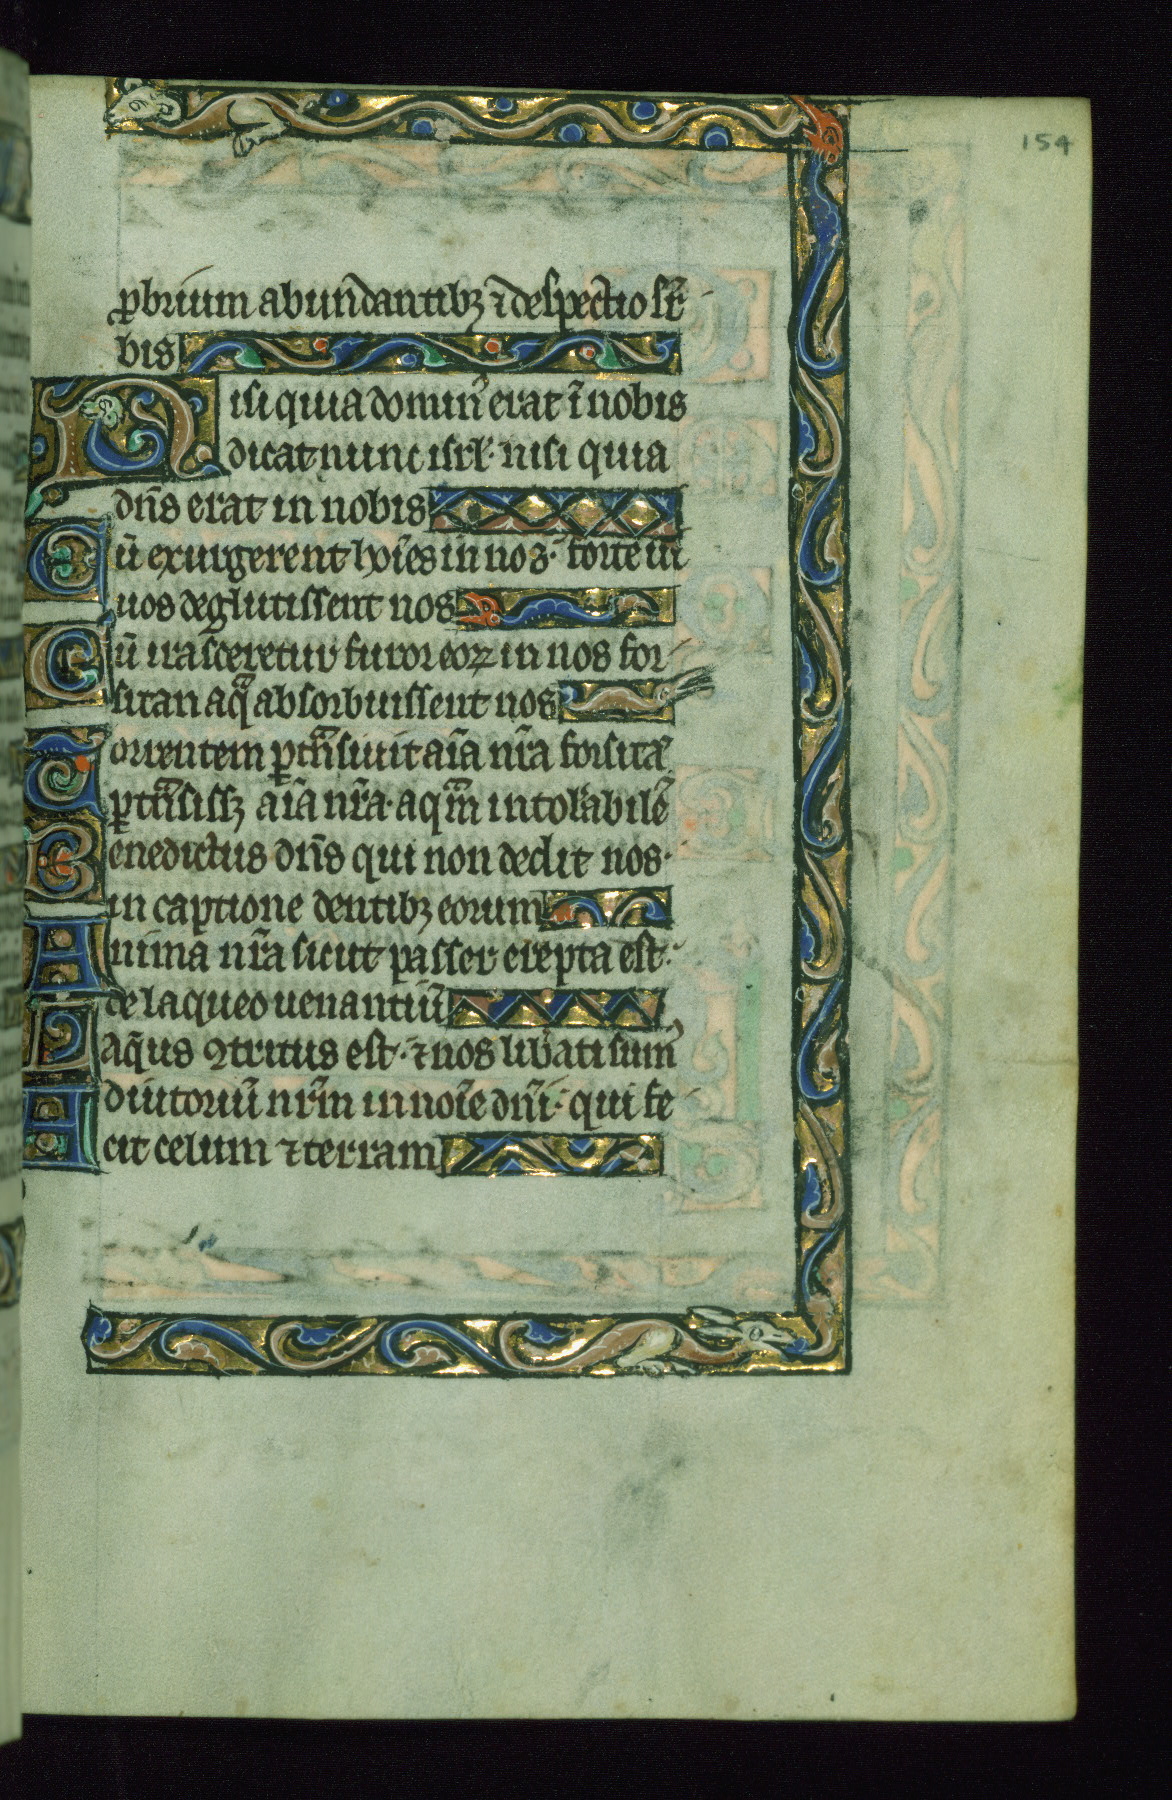 154
ꝓbrium abundantibꝫ ⁊ despectio suꝑ
bis
Nisi quia domin᾿ erat ī nobis
dicat nunc isrl᾿· nisi quia
dn̄s erat in nobis
Cū exurgerent hoīes in nos· forte ui
uos deglutissent nos
Cū irasceretur furor eoꝝ in nos for
sitan aq̄ absorbuissent nos
Torrentem ꝑtn̄siuit aīa nr̄a forsitā
ꝑtn̄sissꝫ aīa nr̄a· aqm̄ intol᾿abilē
Benedictus dn̄s qui non dedit nos·
in captione dentibꝫ eorum
Anima nr̄a sicut passer erepta est·
de laqueo uenantiū
Laq̄us ꝯtritus est· ⁊ nos lib᾿ati sum᾿
Adiutoriū nr̄m in noīe dn̄i· qui fe
cit celum ⁊ terram